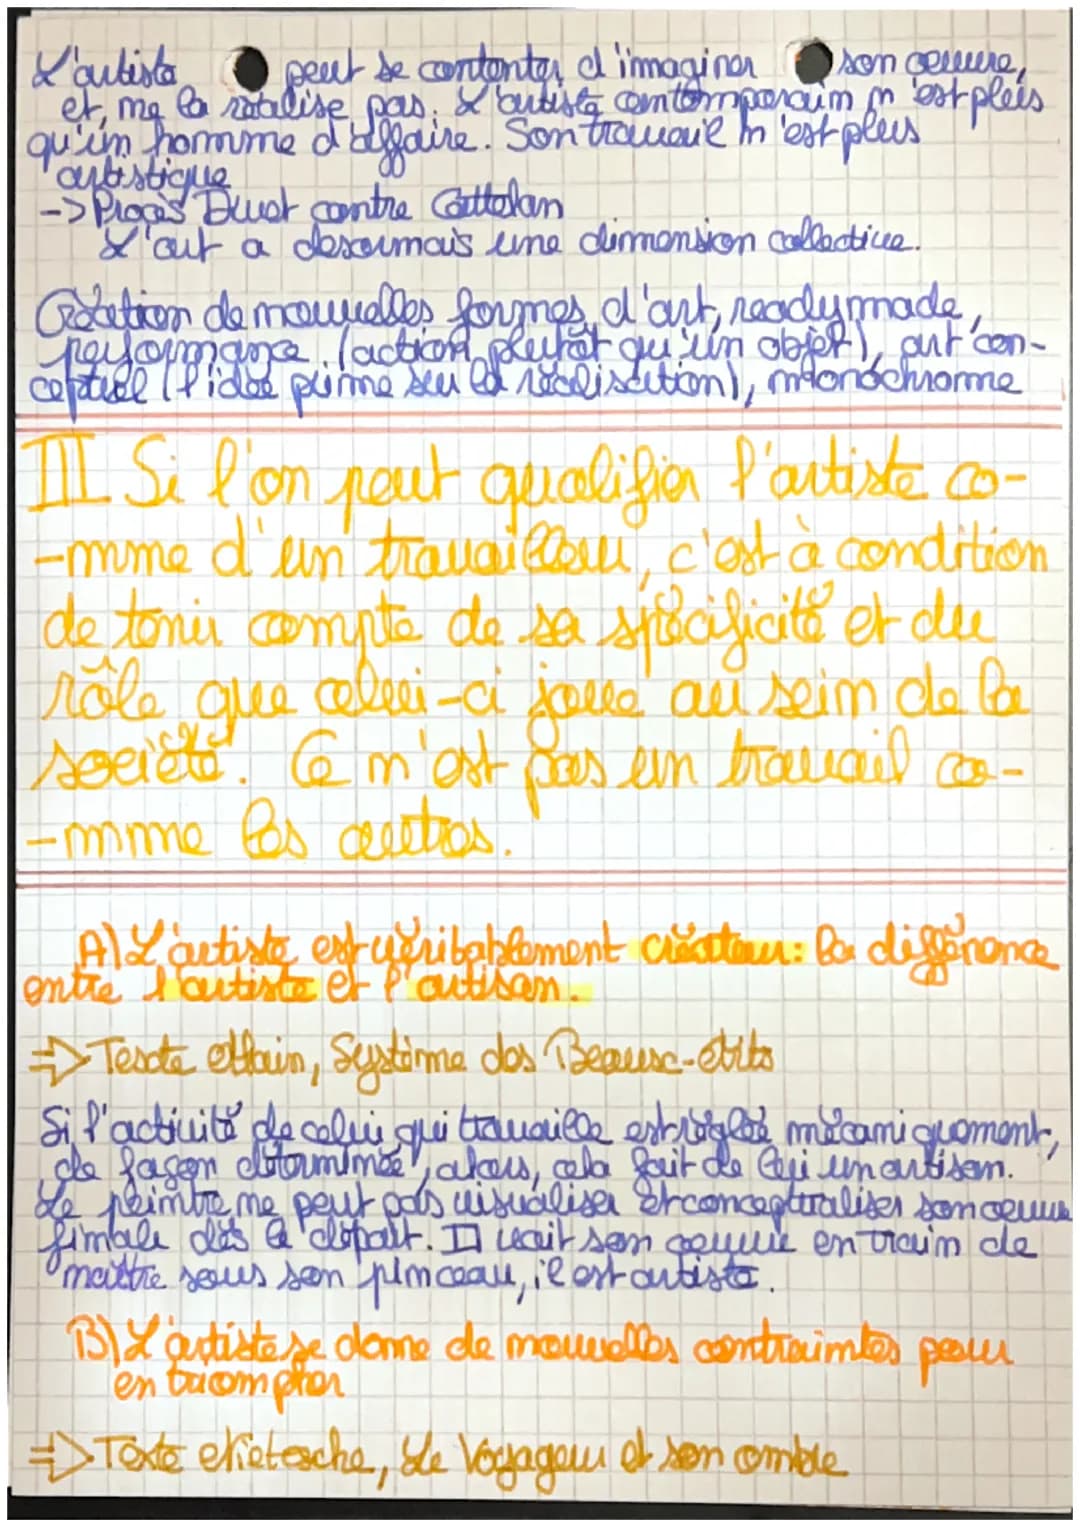 L'artiste peut se contenter d'imaginer son oeuvre,
et, ne la réalise pas. L'artiste contemporain n'est plus
qu'un homme d'affaire. Son travail n'est plus
artistique
-> Procès Druet contre Cattelan
L'art a desormais une dimension collective.
Création de nouvelles formes d'art, readymade,
performance (action plutôt qu'un objet), art con-
ceptuel (l'idée prime sur la réalisation), monochrome
III Si l'on peut qualifier l'artiste co-
-mme d'un travailleur, c'est à condition
de tenir compte de sa spécificité et du
rôle que celui-ci joue au sein de la
société. Ce n'est pas un travail co-
-mme les autres.
A) L'artiste est véritablement créateur: la différence
entre l'artiste et l'artisan.
=> Texte Alain, Système des Beaux-Arts
Si l'activité de celui qui travaille est réglée mécaniquement,
de façon déterminée, alors, cela fait de lui un artisan.
Le peintre ne peut pas visualiser et conceptualiser son oeuvre
finale dès le départ. Il voit son oeuvre en train de
naître sous son pinceau, il est artiste.
B) L'artiste se donne de nouvelles contraintes pour
en triompher
=> Texte Nietzsche, Le Voyageur et son ombre